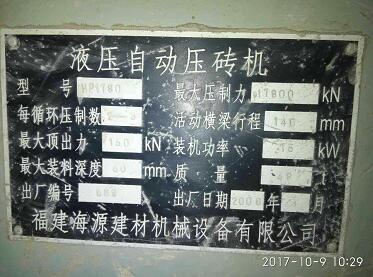 液压自动压砖机
型 号 HP1780 最大压制力 17800 kN
每循环压制数 2-3 活动横梁行程 140 mm
最大顶出力 150 kN 装机功率 kW
最大装料深度 60 mm 质 量
出厂编号 出厂日期 月
福建海源建材机械设备有限公司
2017-10-9 10:29